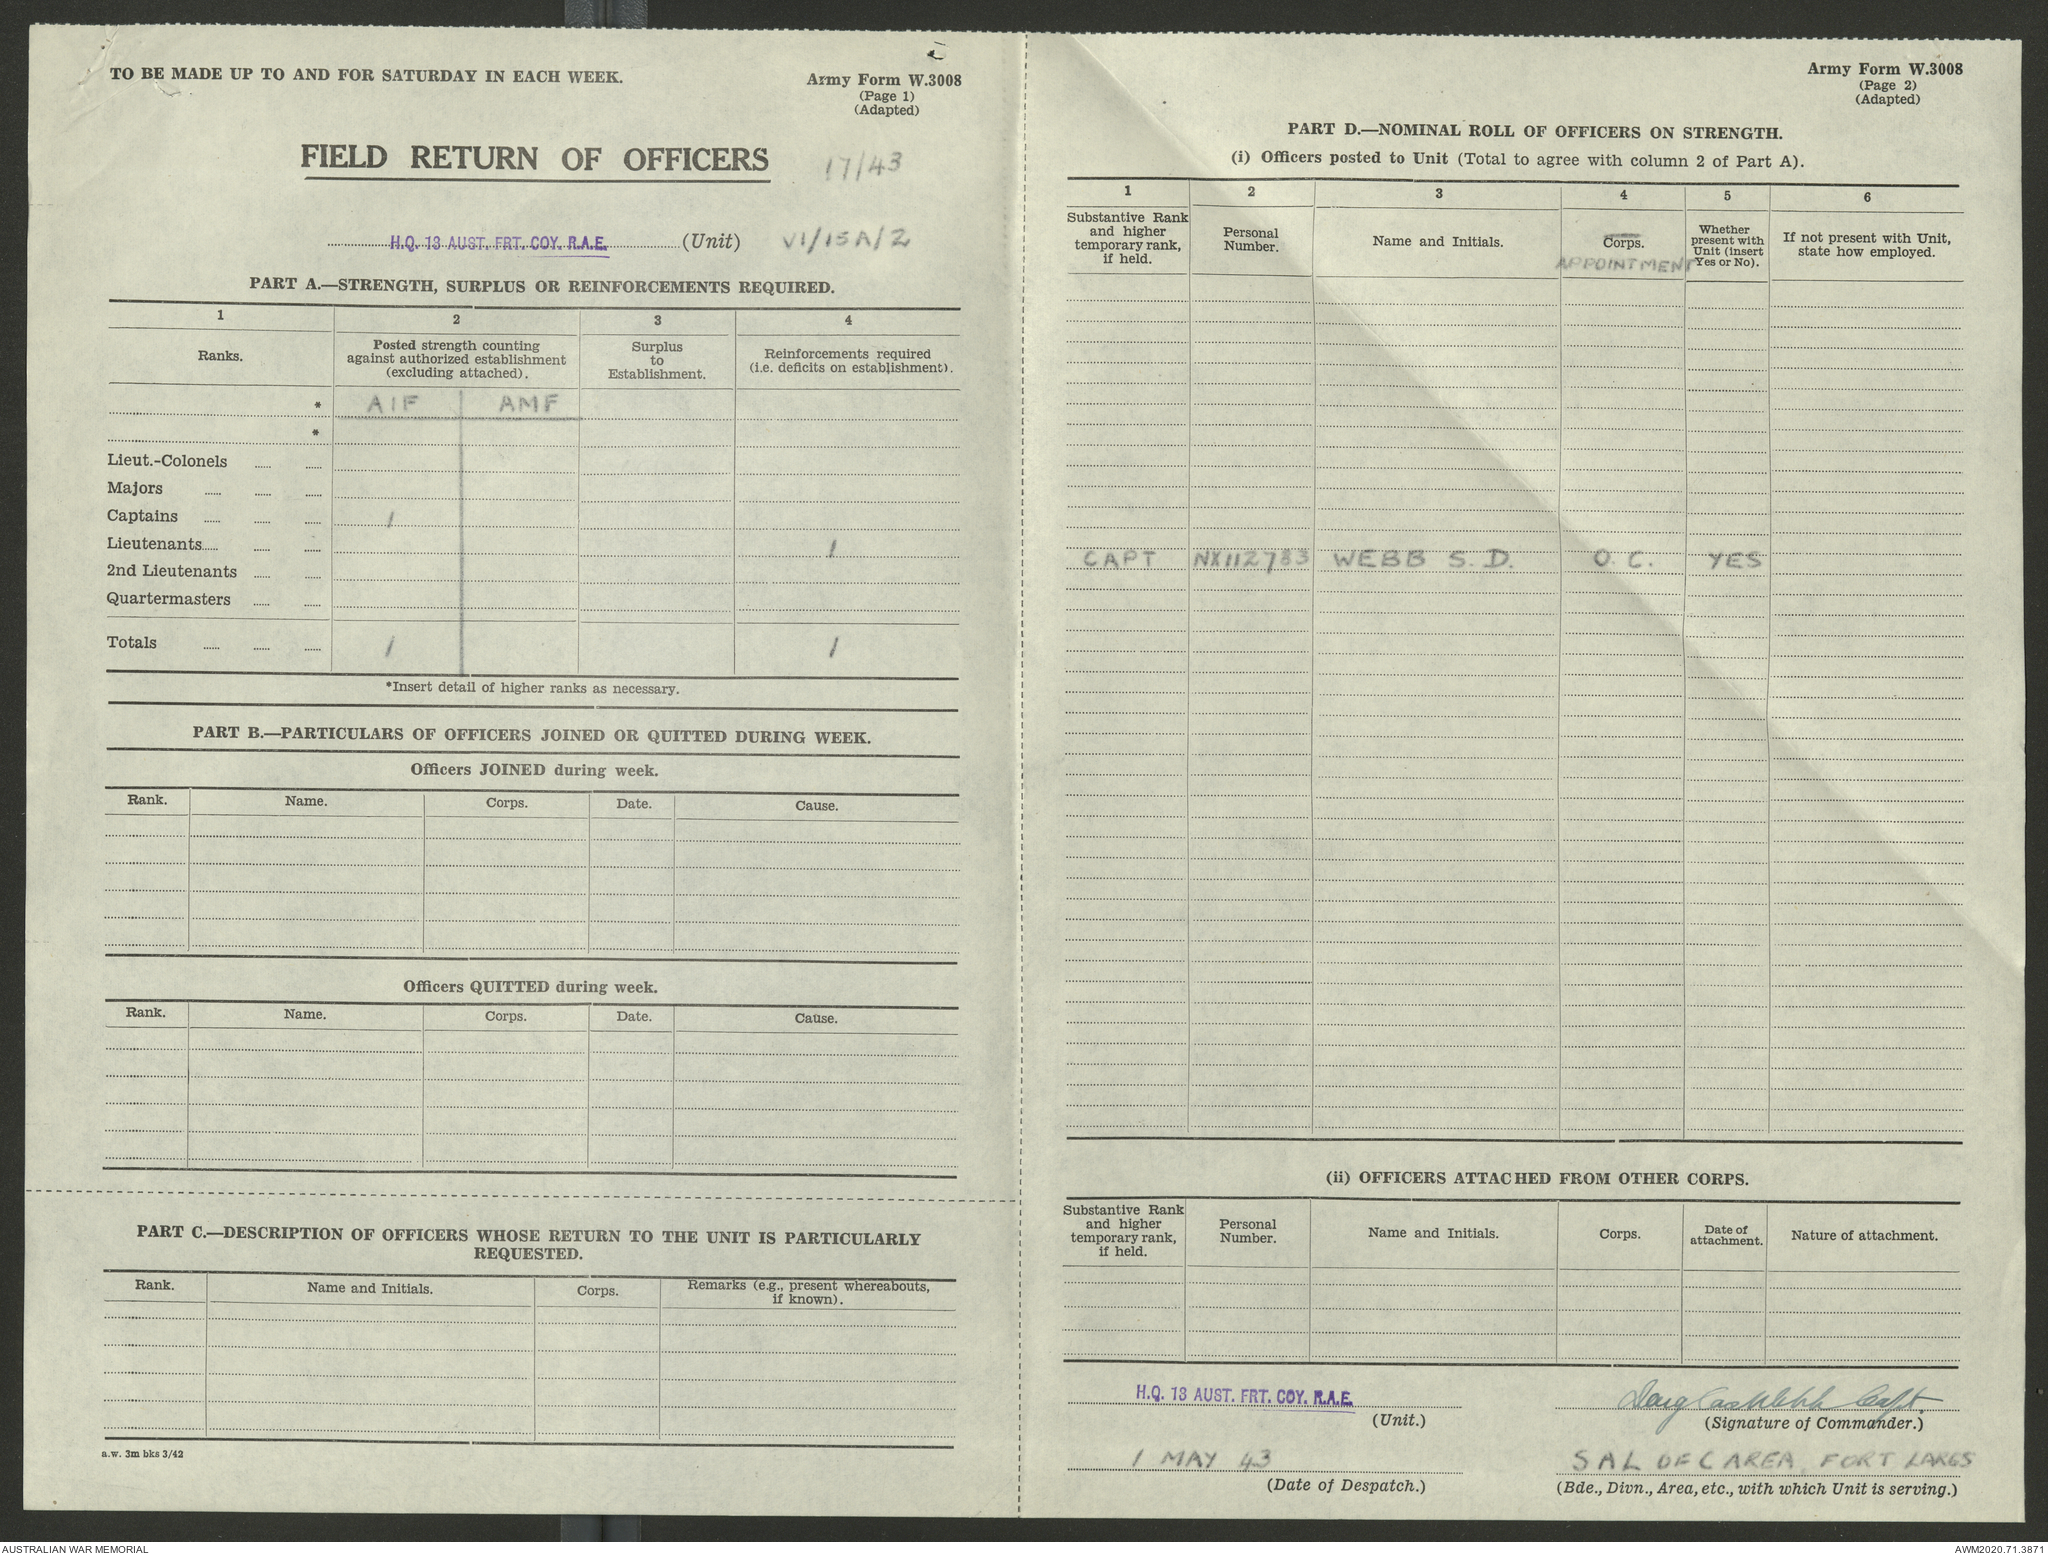 TO BE MADE UP TO AND FOR SATURDAY IN EACH WEEK.
Army Form W.3008
(Page 1)
(Adapted)
FIELD RETURN OF OFFICERS
17/43
H.Q. 13 AUST. FRT. COY. R.A.E. (Unit)
VI/15A/2
PART A.—STRENGTH, SURPLUS OR REINFORCEMENTS REQUIRED.
1 2 3 4
Ranks.
Posted strength counting
against authorized establishment
(excluding attached).
Surplus
to
Establishment.
Reinforcements required
(i.e. deficits on establishment).
* AIF AMF
*
Lieut.-Colonels
Majors
Captains 1
Lieutenants 1
2nd Lieutenants
Quartermasters
Totals 1 1
*Insert detail of higher ranks as necessary.
PART B.—PARTICULARS OF OFFICERS JOINED OR QUITTED DURING WEEK.
Officers JOINED during week.
Rank. Name. Corps. Date. Cause.
Officers QUITTED during week.
Rank. Name. Corps. Date. Cause.
PART C.—DESCRIPTION OF OFFICERS WHOSE RETURN TO THE UNIT IS PARTICULARLY
REQUESTED.
Rank. Name and Initials. Corps. Remarks (e.g., present whereabouts,
if known).
a.w. 3m bks 3/42
Army Form W.3008
(Page 2)
(Adapted)
PART D.—NOMINAL ROLL OF OFFICERS ON STRENGTH.
(i) Officers posted to Unit (Total to agree with column 2 of Part A).
1 2 3 4 5 6
Substantive Rank
and higher
temporary rank,
if held.
Personal
Number.
Name and Initials.
Corps.
APPOINTMENT
Whether
present with
Unit (insert
Yes or No).
If not present with Unit,
state how employed.
CAPT NX112783 WEBB S. D. O. C. YES
(ii) OFFICERS ATTACHED FROM OTHER CORPS.
Substantive Rank
and higher
temporary rank,
if held.
Personal
Number.
Name and Initials.
Corps.
Date of
attachment.
Nature of attachment.
H.Q. 13 AUST. FRT. COY. R.A.E.
(Unit.)
Douglas Webb Capt.
(Signature of Commander.)
1 MAY 43
(Date of Despatch.)
SAL DEF C AREA, FORT LARGS
(Bde., Divn., Area, etc., with which Unit is serving.)
AUSTRALIAN WAR MEMORIAL
AWM2020.71.3871